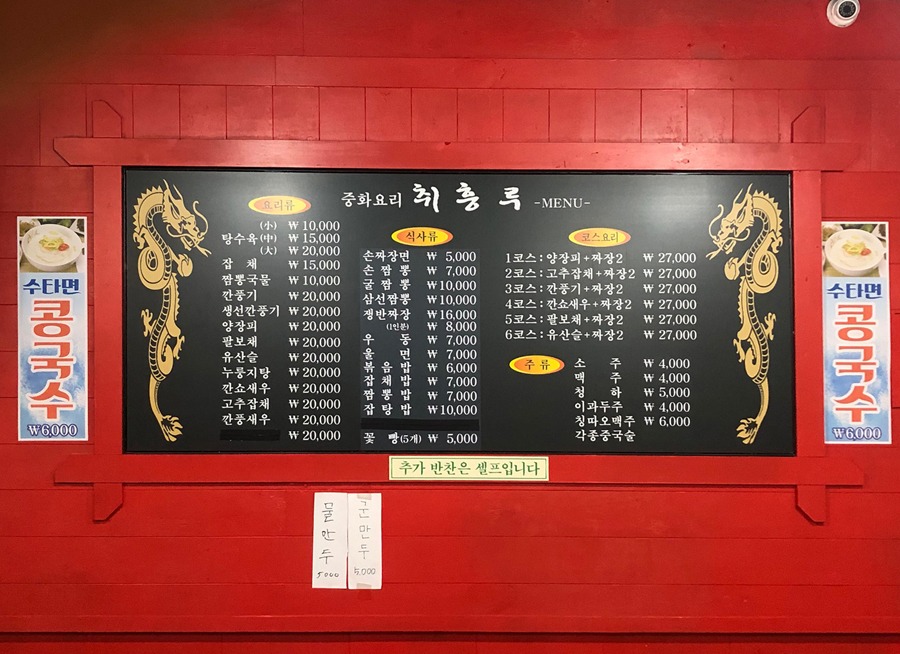 중화요리 취흥루 -MENU-
요리류
탕수육 (小) ₩ 10,000
(中) ₩ 15,000
(大) ₩ 20,000
잡 채 ₩ 15,000
짬뽕국물 ₩ 10,000
깐풍기 ₩ 20,000
생선깐풍기 ₩ 20,000
양장피 ₩ 20,000
팔보채 ₩ 20,000
유산슬 ₩ 20,000
누룽지탕 ₩ 20,000
깐쇼새우 ₩ 20,000
고추잡채 ₩ 20,000
깐풍새우 ₩ 20,000
₩ 20,000
식사류
손짜장면 ₩ 5,000
손 짬 뽕 ₩ 7,000
굴 짬 뽕 ₩ 10,000
삼선짬뽕 ₩ 10,000
쟁반짜장 ₩ 16,000
(1인분) ₩ 8,000
우 동 ₩ 7,000
울 면 ₩ 7,000
볶 음 밥 ₩ 6,000
잡 채 밥 ₩ 7,000
짬 뽕 밥 ₩ 7,000
잡 탕 밥 ₩ 10,000
꽃 빵(5개) ₩ 5,000
코스요리
1코스 : 양장피+짜장2 ₩ 27,000
2코스 : 고추잡채+짜장2 ₩ 27,000
3코스 : 깐풍기+짜장2 ₩ 27,000
4코스 : 깐쇼새우+짜장2 ₩ 27,000
5코스 : 팔보채+짜장2 ₩ 27,000
6코스 : 유산슬+짜장2 ₩ 27,000
주 류
소 주 ₩ 4,000
맥 주 ₩ 4,000
청 하 ₩ 5,000
이과두주 ₩ 4,000
칭따오맥주 ₩ 6,000
각종중국술
수타면
콩국수
₩6,000
수타면
콩국수
₩6,000
추가 반찬은 셀프입니다
물만두
5,000
군만두
5,000